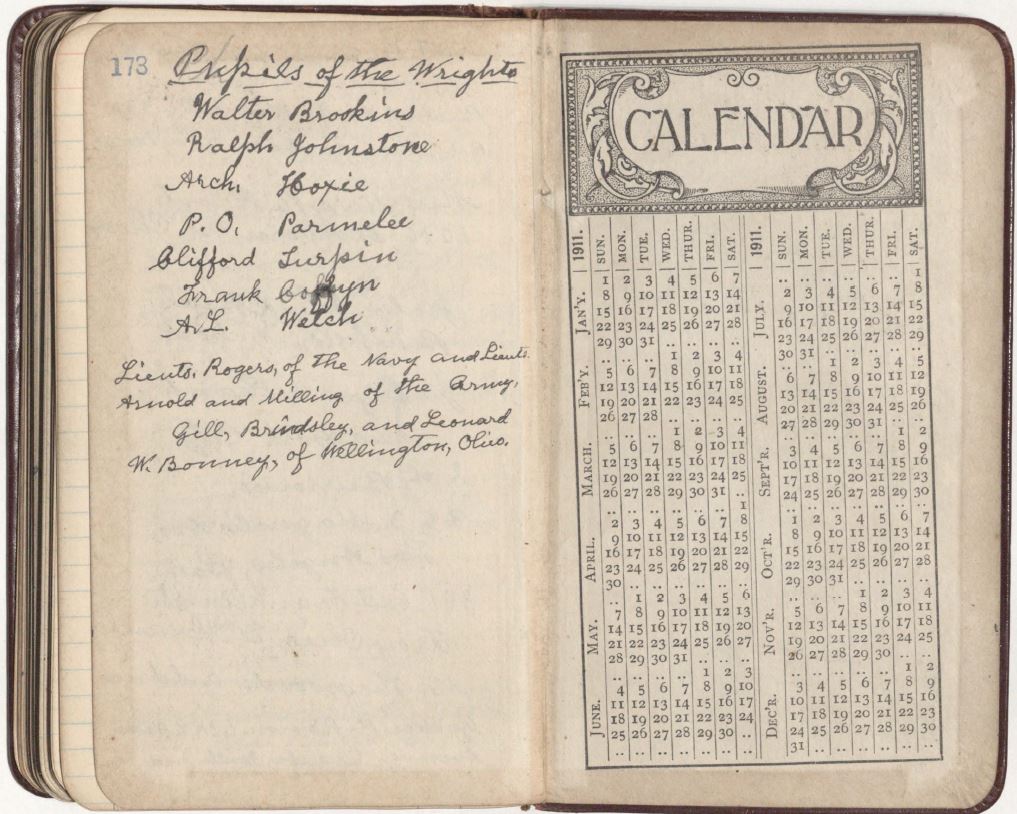 173 Pupils of the Wrights
Walter Brookins
Ralph Johnstone
Arch. Hoxie
P. O. Parmelee
Clifford Turpin
Frank Coffyn
A. L. Welch
Lieuts. Rogers, of the Navy and Lieuts.
Arnold and Milling of the Army,
Gill, Brindsley, and Leonard
W. Bonney, of Wellington, Ohio.
CALENDAR
1911. SUN. MON. TUE. WED. THUR. FRI. SAT.
JAN'Y.
1 2 3 4 5 6 7
8 9 10 11 12 13 14
15 16 17 18 19 20 21
22 23 24 25 26 27 28
29 30 31 .. .. .. ..
FEB'Y.
.. .. .. 1 2 3 4
5 6 7 8 9 10 11
12 13 14 15 16 17 18
19 20 21 22 23 24 25
26 27 28 .. .. .. ..
MARCH.
.. .. .. 1 2 3 4
5 6 7 8 9 10 11
12 13 14 15 16 17 18
19 20 21 22 23 24 25
26 27 28 29 30 31 ..
APRIL.
.. .. .. .. .. .. 1
2 3 4 5 6 7 8
9 10 11 12 13 14 15
16 17 18 19 20 21 22
23 24 25 26 27 28 29
30 .. .. .. .. .. ..
MAY.
.. 1 2 3 4 5 6
7 8 9 10 11 12 13
14 15 16 17 18 19 20
21 22 23 24 25 26 27
28 29 30 31 .. .. ..
JUNE.
.. .. .. .. 1 2 3
4 5 6 7 8 9 10
11 12 13 14 15 16 17
18 19 20 21 22 23 24
25 26 27 28 29 30 ..
.. .. .. .. .. .. ..
1911. SUN. MON. TUE. WED. THUR. FRI. SAT.
JULY.
.. .. .. .. .. .. 1
2 3 4 5 6 7 8
9 10 11 12 13 14 15
16 17 18 19 20 21 22
23 24 25 26 27 28 29
30 31 .. .. .. .. ..
AUGUST.
.. .. 1 2 3 4 5
6 7 8 9 10 11 12
13 14 15 16 17 18 19
20 21 22 23 24 25 26
27 28 29 30 31 .. ..
SEPT'R.
.. .. .. .. .. 1 2
3 4 5 6 7 8 9
10 11 12 13 14 15 16
17 18 19 20 21 22 23
24 25 26 27 28 29 30
OCT'R.
1 2 3 4 5 6 7
8 9 10 11 12 13 14
15 16 17 18 19 20 21
22 23 24 25 26 27 28
29 30 31 .. .. .. ..
NOV'R.
.. .. .. 1 2 3 4
5 6 7 8 9 10 11
12 13 14 15 16 17 18
19 20 21 22 23 24 25
26 27 28 29 30 .. ..
DEC'R.
.. .. .. .. .. 1 2
3 4 5 6 7 8 9
10 11 12 13 14 15 16
17 18 19 20 21 22 23
24 25 26 27 28 29 30
31 .. .. .. .. .. ..